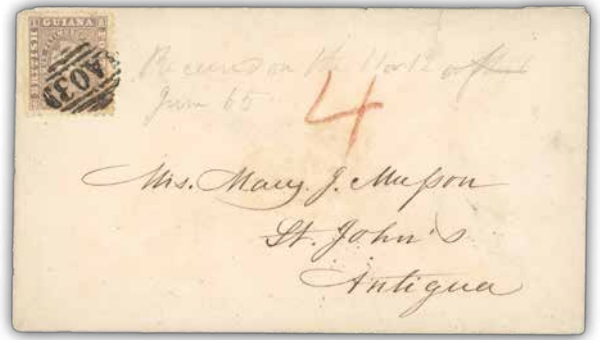 BRITISH GUIANA
A03
Received on the 11 or 12 of
June 65
4
Mrs. Mary J. Musson
St. John's
Antigua